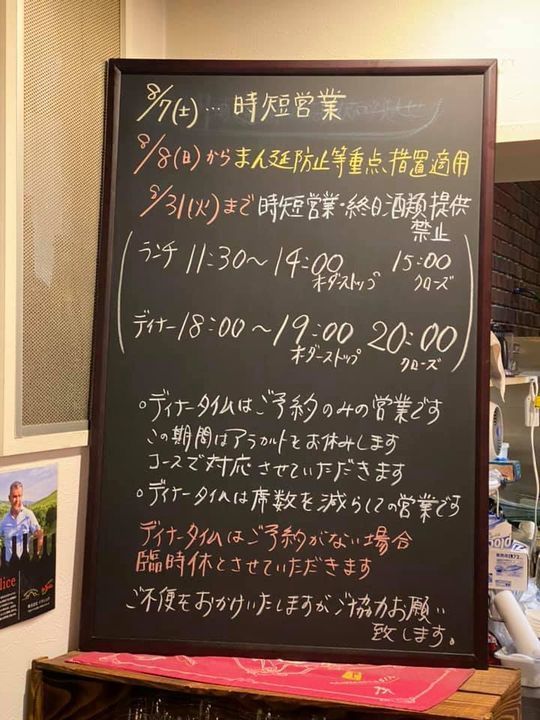 8/7(土)…時短営業
8/8(日)からまん延防止等重点措置適用
8/31(火)まで時短営業・終日酒類提供
禁止
ランチ 11:30〜14:00 15:00
オーダストップ クローズ
ディナー18:00〜19:00 20:00
オーダーストップ クローズ
○ディナータイムはご予約のみの営業です
この期間はアラカルトをお休みします
コースで対応させていただきます
○ディナータイムは席数を減らしての営業です
ディナータイムはご予約がない場合
臨時休とさせていただきます
ご不便をおかけいたしますがご協力お願い
致します。
lice